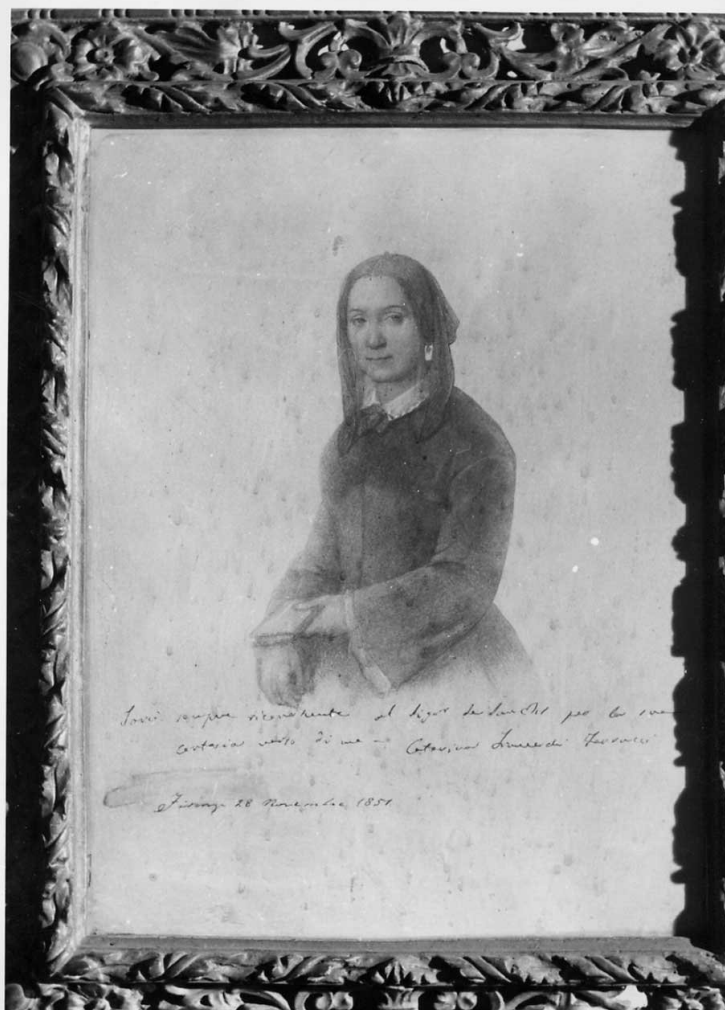 Sarò sempre riconoscente al Sigr de per la sua
cortesia verso di me Caterina Franceschi Ferrucci
Firenze 28 Novembre 1851